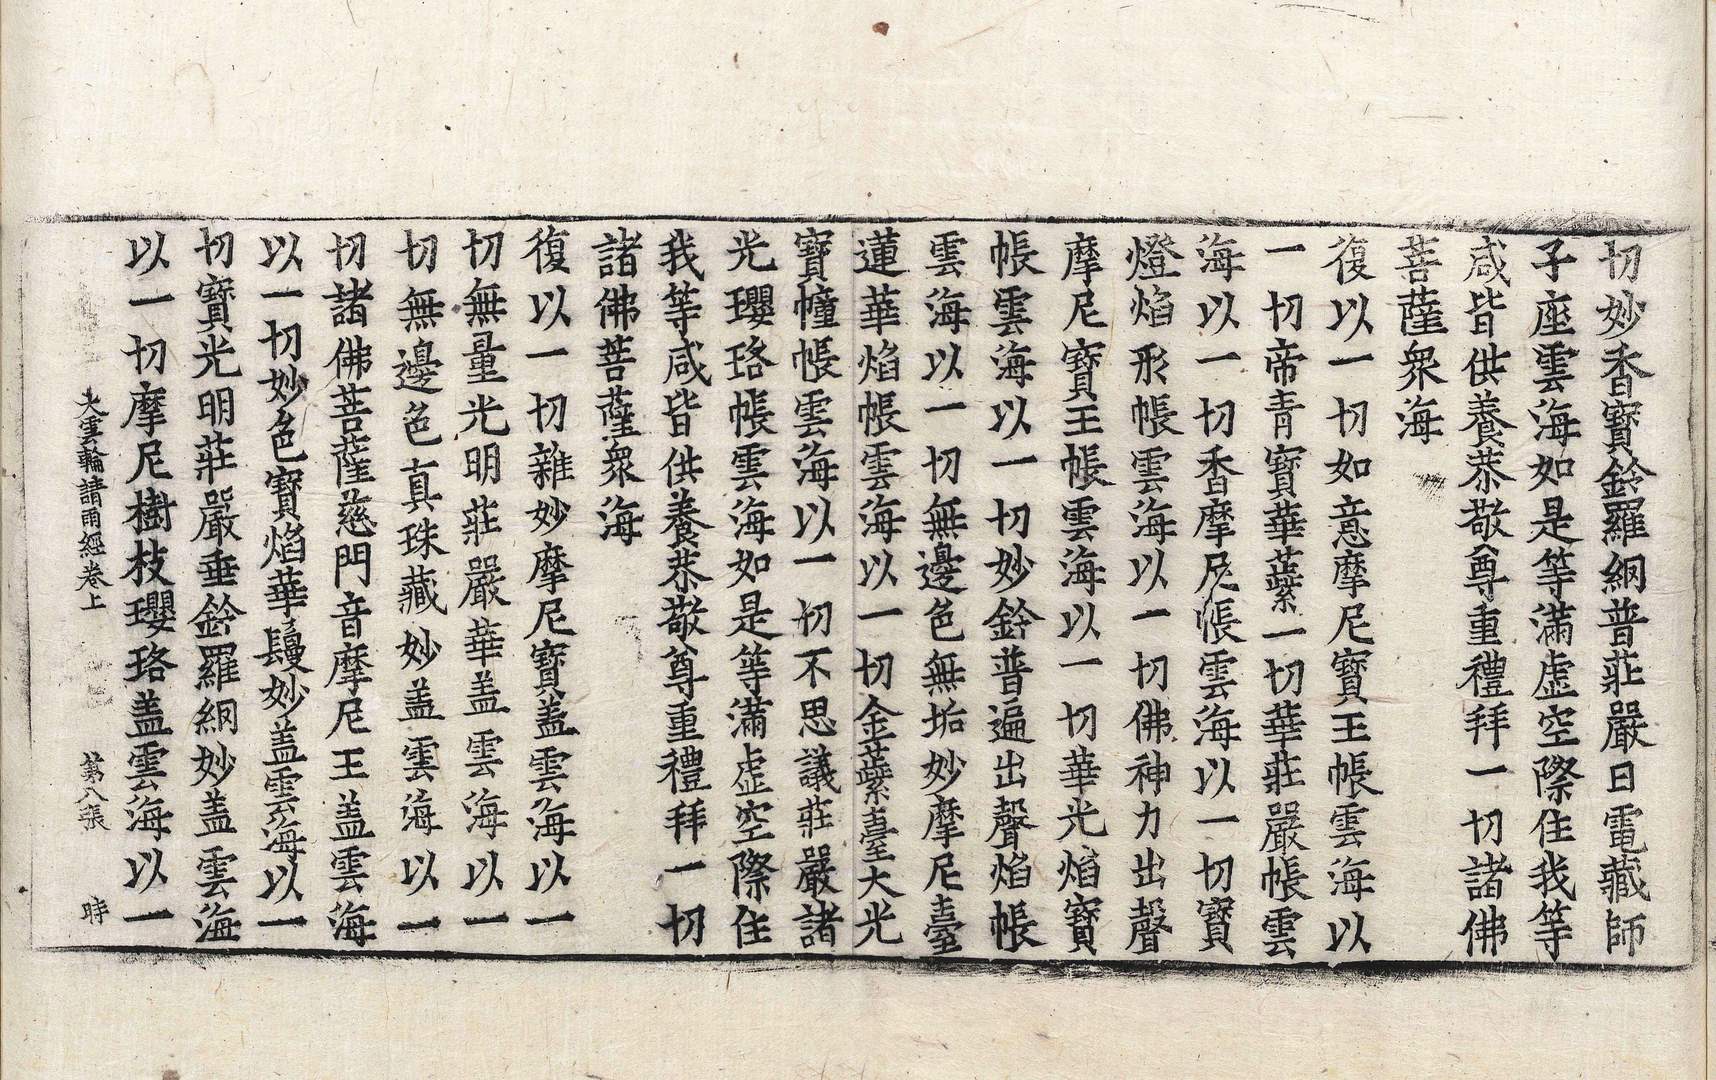 切妙香寶鈴羅網普莊嚴日電藏師
子座雲海如是等滿虛空際住我等
咸皆供養恭敬尊重禮拜一切諸佛
菩薩衆海
復以一切如意摩尼寶王帳雲海以
一切帝青寶華蘂一切華莊嚴帳雲
海以一切香摩尼帳雲海以一切寶
燈焰形帳雲海以一切佛神力出聲
摩尼寶王帳雲海以一切華光焰寶
帳雲海以一切妙鈴普遍出聲焰帳
雲海以一切無邊色無垢妙摩尼臺
蓮華焰帳雲海以一切金蘂臺大光
寶幢帳雲海以一切不思議莊嚴諸
光瓔珞帳雲海如是等滿虛空際住
我等咸皆供養恭敬尊重禮拜一切
諸佛菩薩衆海
復以一切雜妙摩尼寶蓋雲海以一
切無量光明莊嚴華盖雲海以一
切無邊色真珠藏妙盖雲海以一
切諸佛菩薩慈門音摩尼王盖雲海
以一切妙色寶焰華鬘妙盖雲海以一
切寶光明莊嚴垂鈴羅網妙盖雲海
以一切摩尼樹枝瓔珞盖雲海以一
大雲輪請雨經卷上 第八張 時